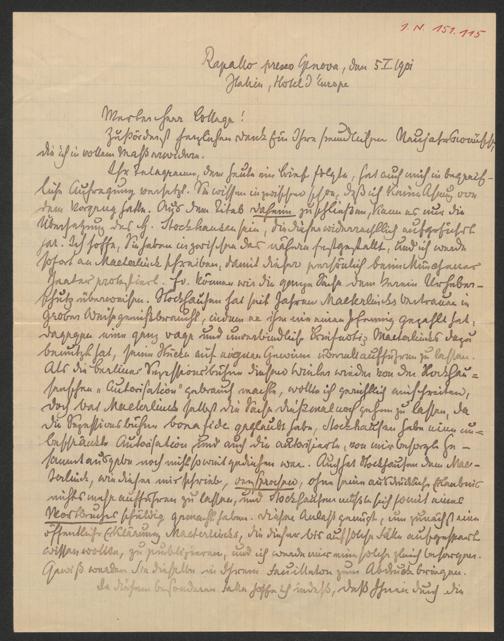 I.N. 151.115
Rapallo presso Genova, den 5 I 1901
Italien, Hotel d'Europe
Werter Herr College!
Zuförderst herzlichsten Dank für Ihre freundlichen Neujahrswünsche,
die ich in vollem Maße erwidere.
Ihr Telegramm, dem heute ein Brief folgte, hat auch mich in begreif-
liche Aufregung versetzt. Sie wissen inzwischen schon, daß ich keine Ahnung von
dem Vorgang hatte. Aus dem Titel daheim zu schließen, kann es nur die
Übersetzung des H. Stockhausen sein, die dieser widerrechtlich aufgeführt
hat. Ich hoffe, Sie haben inzwischen das nähere festgestellt, und ich werde
sofort an Maeterlinck schreiben, damit dieser persönlich beim Münchener
Theater protestiert. Ev. können wir die ganze Sache dem Verein Urheber-
schutz überweisen. Stockhausen hat seit Jahren Maeterlincks Vertrauen in
grober Weise gemißbraucht, indem er ihm nie einen Pfennig gezahlt hat,
dagegen eine ganz vage und unverbindliche Briefnotiz Maeterlincks dazu
benutzt hat, seine Stücke auf eigenen Gewinn überall aufführen zu lassen.
Als die Berliner Sezessionsbühne diesen Winter wieder von der Stockhau-
senschen "Autorisation" Gebrauch machte, wollte ich gerichtlich einschreiten,
doch bat Maeterlinck selbst die Sache diesmal noch gehen zu lassen, da
die Sezessionsbühne bona fide geglaubt habe, Stockhausen habe eine un-
beschränkte Autorisation und auch die autorisierte, von mir besorgte Ge-
samtausgabe noch nicht soweit gediehen war. Auch hat Stockhausen dem Mae-
terlinck, wie dieser mir schrieb, versprochen, ohne seine ausdrückliche Erlaubnis
nichts mehr aufführen zu lassen, und Stockhausen würde sich somit eines
Wortbruches schuldig gemacht haben. Dieser Anlaß genügt, um zunächst eine
öffentliche Erklärung Maeterlincks, die dieser bis auf solche Fälle aufgespart
wissen wollte, zu publizieren, und ich werde mir eine solche gleich besorgen.
Gewiß werden Sie dieselbe in Ihrem Feuilleton zum Abdruck bringen.
In diesem besonderen Falle hoffe ich indeß, daß Ihnen durch die